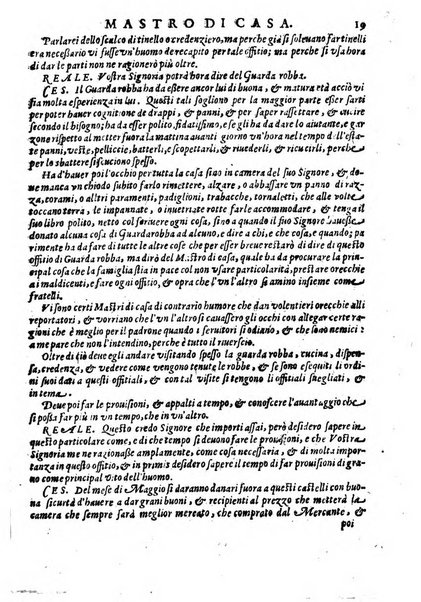 MASTRO DI CASA. 19
Parlarei dello scalco di tinello o credenziero, ma perche già si soleuano far tinelli
era necessario vi fusse vn'huomo de recapito per tale offitio; ma perche si vsa hora
di dar li parti non ne ragionerò più oltre.
REALE. Vostra Signoria potrà hora dire del Guarda robba.
CES. Il Guardarobba ha da esser ancor lui di buona, & matura età acciò vi
sia molta esperienza in lui. Questi tali sogliono per la maggior parte esser sarti
per poter hauer cognitione de drappi, & panni, & per saper rassettare, & guardar
secondo il bisogno; ha da esser molto polito, fidatissimo, e se gli ha da dare lo aiutante, e gran
rispetto al metter fuora la mattina auanti giorno vn'hora nel tempo dell'esta-
te panni, veste, pelliccie, batterli, e scopettarli, & riuederli, & ricucirli, perche
per lo sbattere si scuciono spesso.
Ha d'hauer poi l'occhio per tutta la casa sino in camera del suo Signore, & do
ue manca vn chiodo subito farlo rimettere, alzare, o abbassare vn panno di raz-
za, corami, o altri paramenti, padiglioni, trabacche, tornaletti, che alle volte
toccano terra, le impannate, o inuetriate rotte farle accommodare, & tenga il
suo libro polito, netto col scriuere ogni cosa, sino a quando il suo Signore hauesse
donato alcuna cosa di Guardarobba ad alcuno, & doue, & come, & quando; pa
rimente ha da far di molte altre cose che per esser breue restarò di dire di questo
offitio di Guarda robba, ma dirò del Mastro di casa, quale ha da procurare la prin-
cipal cosa che la famiglia stia in pace col non vsare particolarità, prestare orecchie
ai maledicenti, et far ogni cosa, & opra che l'un l'altro si amino insieme come
fratelli.
Vi sono certi Mastri di casa di contrario humore che dan volentieri orecchie alli
reportatori, & vorriano che l'un l'altro si cauassero gli occhi con allegar certe ra
gioni che è meglio per il padrone quando i seruitori si odiano, & che sono nemici: a
me pare che non l'intendino, perche è tutto il riuerscio.
Oltre di ciò deue andare visitando spesso la guarda robba, cucina, dispen-
sa, credenza, & vedere come vengono tenute le robbe, & se sono eseguiti li ordi-
ni suoi dati a questi offitiali, & con tal visite si tengono li offitiali suegliati, & in
tema.
Deue poi far le prouisioni, & appalti, & conoscere l'auantaggio che
si possa far più in vn tempo, che in vn'altro.
REALE. Questo credo Signore che importi assai, però desidero sapere in
questo particolare come, & di che tempo si deuono fare le prouisioni, e che Vostra
Signoria me ne ragionasse amplamente, come quella che ha consumato molto tem-
po in questo offitio, & in primis desidero sapere del tempo di far prouisioni di gra-
no come principal vito dell'huomo.
CES. Del mese di Maggio si daranno danari fuora a questi castelli con buo-
na sicurtà d'hauere a dar grani buoni, & recipienti al prezzo che metterà la
camera che sempre sarà meglior mercato, che comprato dal Mercante, &
poi